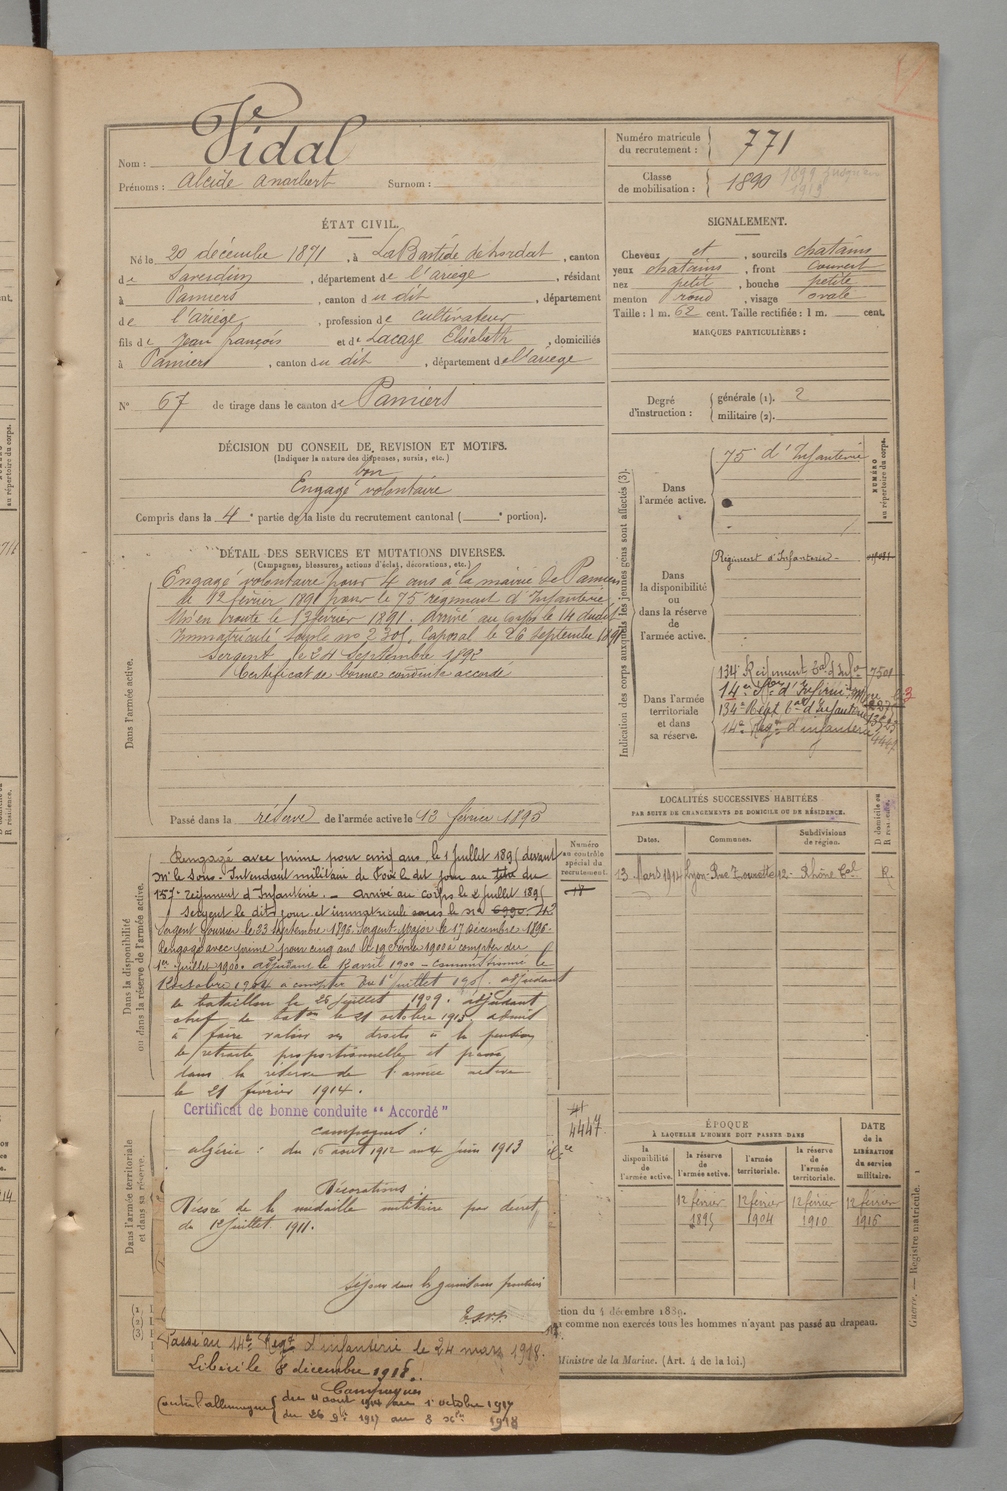 Nom : Vidal
Prénoms : Alcide Anoubert Surnom :
Numéro matricule du recrutement : 771
Classe de mobilisation : 1890
ÉTAT CIVIL.
Né le 20 décembre 1871, à La Bastide de Lordat, canton
de Saverdun, département de l'ariège, résidant
à Pamiers, canton du dit, département
de l'ariège, profession de cultivateur
fils de Jean françois et de Lacaze Elisabeth, domiciliés
à Pamiers, canton du dit, département de l'ariège
N° 67 de tirage dans le canton de Pamiers
SIGNALEMENT.
Cheveux et, sourcils chatains
yeux chatains, front couvert
nez petit, bouche petite
menton rond, visage ovale
Taille : 1 m. 62 cent. Taille rectifiée : 1 m. cent.
MARQUES PARTICULIÈRES :
Degré d'instruction : générale (1). 2
militaire (2).
DÉCISION DU CONSEIL DE REVISION ET MOTIFS.
(Indiquer la nature des dispenses, sursis, etc.)
bon
Engagé volontaire
Compris dans la 4e partie de la liste du recrutement cantonal ( e portion).
DÉTAIL DES SERVICES ET MUTATIONS DIVERSES.
(Campagnes, blessures, actions d'éclat, décorations, etc.)
Dans l'armée active.
Engagé volontaire pour 4 ans à la mairie de Pamiers
le 12 février 1891 pour le 75e régiment d'Infanterie
Mis en route le 13 février 1891. Arrivé au corps le 14 dudit
Immatriculé sous le no 2301. Caporal le 26 septembre 1891
Sergent le 24 Septembre 1892
Certificat de bonne conduite accordé
Passé dans la réserve de l'armée active le 13 février 1895
Indication des corps auxquels les jeunes gens sont affectés (3).
NUMÉRO au répertoire du corps.
Dans l'armée active.
75e d'Infanterie
Dans la disponibilité ou dans la réserve de l'armée active.
Régiment d'Infanterie
Dans l'armée territoriale et dans sa réserve.
134e Régiment Tal d'Infie
134e Régt Tal d'Infanterie
14e Régt d'infanterie 4447
LOCALITÉS SUCCESSIVES HABITÉES
PAR SUITE DE CHANGEMENTS DE DOMICILE OU DE RÉSIDENCE.
Dates. Communes. Subdivisions de région. D domicile ou R résidence.
13 Mars 1914 Lyon - Rue Rhône R.
Numéro au contrôle spécial du recrutement.
Dans la disponibilité ou dans la réserve de l'armée active.
Rengagé avec prime pour cinq ans le 1 Juillet 1895 devant
Mr le Sous-Intendant militaire de Foix le dit jour au titre du
157e régiment d'Infanterie. - Arrivé au corps le 2 Juillet 1895
Sergent le dit jour et immatriculé sous le no
Sergent fourrier le 23 Septembre 1895. Sergent-Major le 17 Décembre 1896.
Rengagé avec prime pour cinq ans le 19 Février 1900 à compter du
1er Juillet 1900. adjudant le 12 avril 1900 - commissionné le
12 octobre 1904 à compter du 1er Juillet 1905. adjudant
de bataillon le 25 Juillet 1909. adjudant
chef de baton le 21 octobre 1913. admis
à faire valoir ses droits à la pension
de retraite proportionnelle et passé
dans la réserve de l'armée active
le 21 février 1914.
Certificat de bonne conduite "Accordé"
Campagnes :
algérie : du 16 aout 1912 au 4 Juin 1913
Décorations :
Décoré de la médaille militaire par décret
du 12 Juillet 1911.
4447
Dans l'armée territoriale et dans sa réserve.
ÉPOQUE
À LAQUELLE L'HOMME DOIT PASSER DANS
la disponibilité de l'armée active. la réserve de l'armée active. l'armée territoriale. la réserve de l'armée territoriale.
DATE de la LIBÉRATION du service militaire.
12 février 1895 12 février 1904 12 février 1910 12 février 1916
Guerre. — Registre matricule. 1
(1)
(2)
(3)
ction du 4 décembre 1889.
comme non exercés tous les hommes n'ayant pas passé au drapeau.
Ministre de la Marine. (Art. 4 de la loi.)
Passé au 14e Régt d'infanterie le 24 mars 1918.
Libéré le 8 décembre 1918.
Campagnes
Contre l'allemagne du 4 aout 1914 au 1er octobre 1917
du 26 9bre 1917 au 8 Xbre 1918